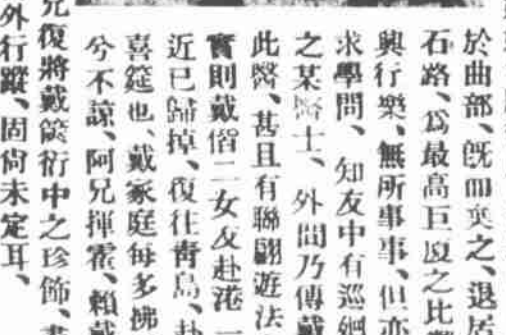 於曲部、旣而奕之、退居
石路、爲最高巨廈之比
興行樂、無所事事、但亦
求學問、知友中有巡廻
之某醫士、外間乃傳戴
此醫、甚且有聯翩遊法
實則戴偕二女友赴港一
近已歸掉、復往靑島、赴
喜筵也、戴家庭每多拂
兮不諒、阿兄揮霍、賴戴
兄復將戴篋衍中之珍飾、
外行蹤、固尙未定耳、